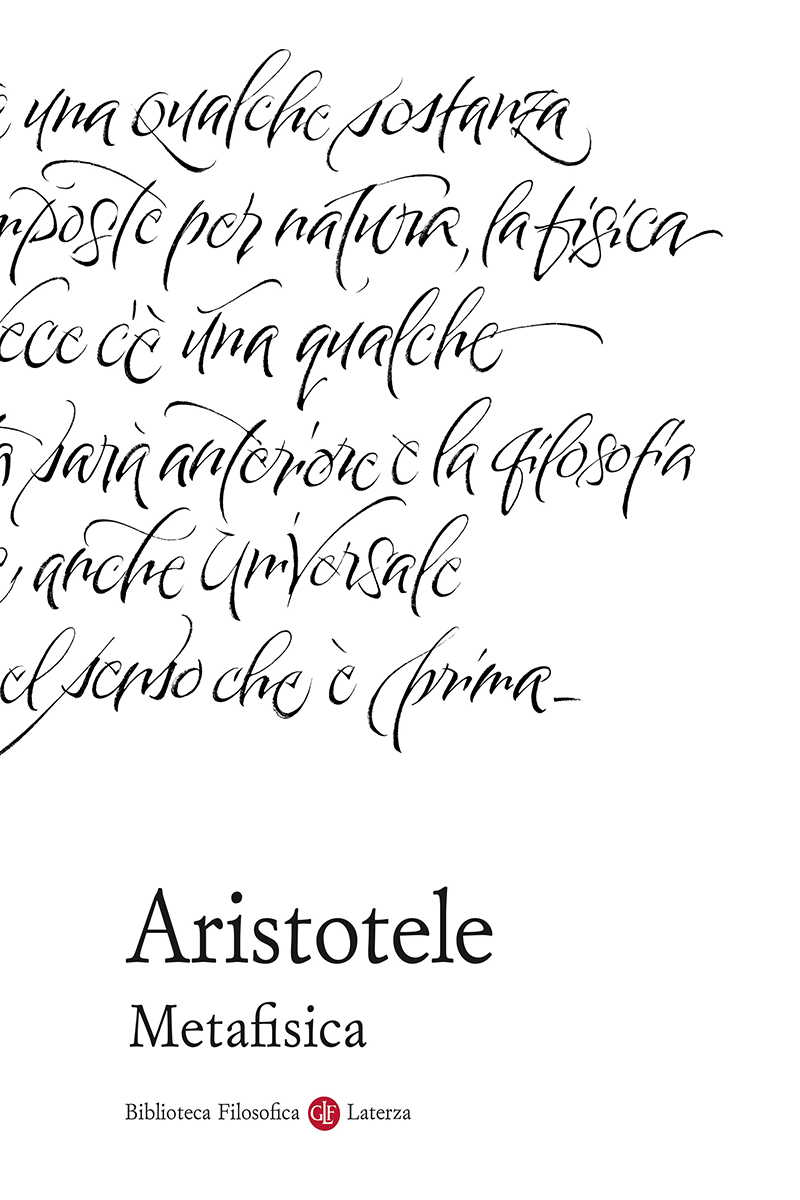 è una qualche sostanza
mposte per natura, la fisica
ece c'è una qualche
sarà anteriore e la filosofia
anche universale
el senso che è prima_
Aristotele
Metafisica
Biblioteca Filosofica GLF Laterza